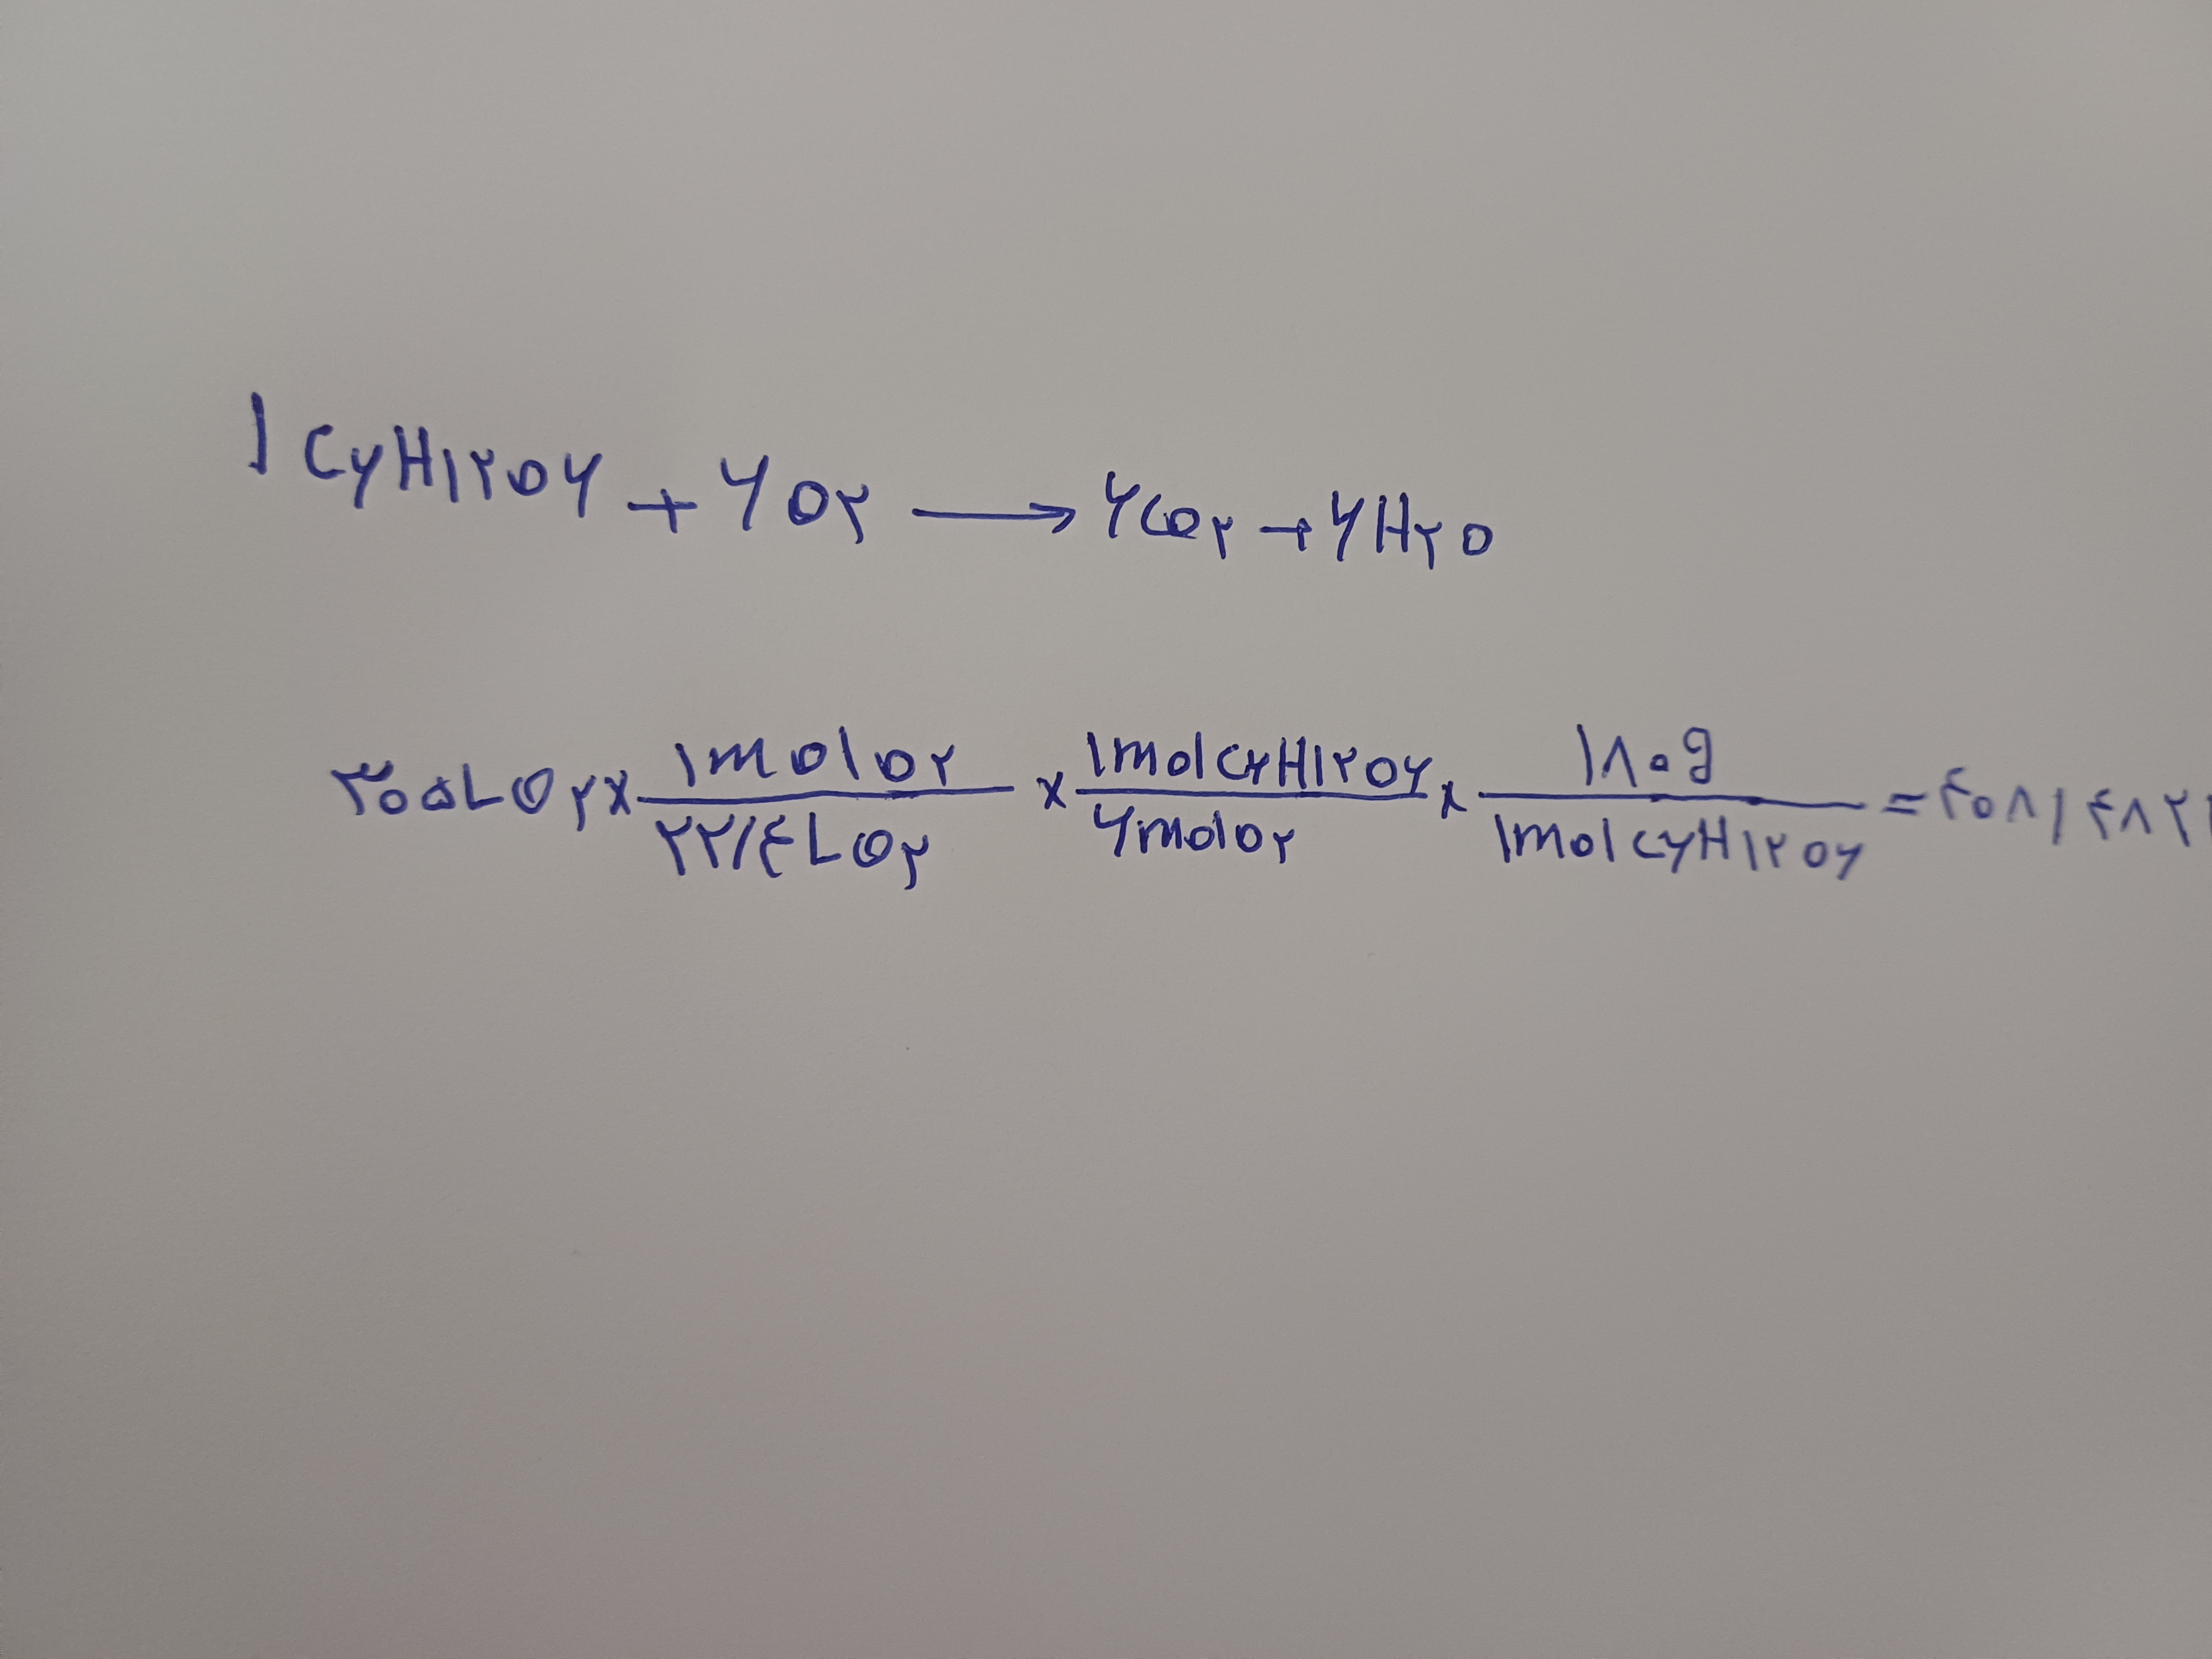 ۱C۶H۱۲O۶ + ۶O۲ → ۶CO۲ + ۶H۲O
۳۰۵LO۲ × ۱molO۲/۲۲/۴LO۲ × ۱molC۶H۱۲O۶/۶molO۲ × ۱۸۰g/۱molC۶H۱۲O۶ = ۴۰۸/۴۸۲۱